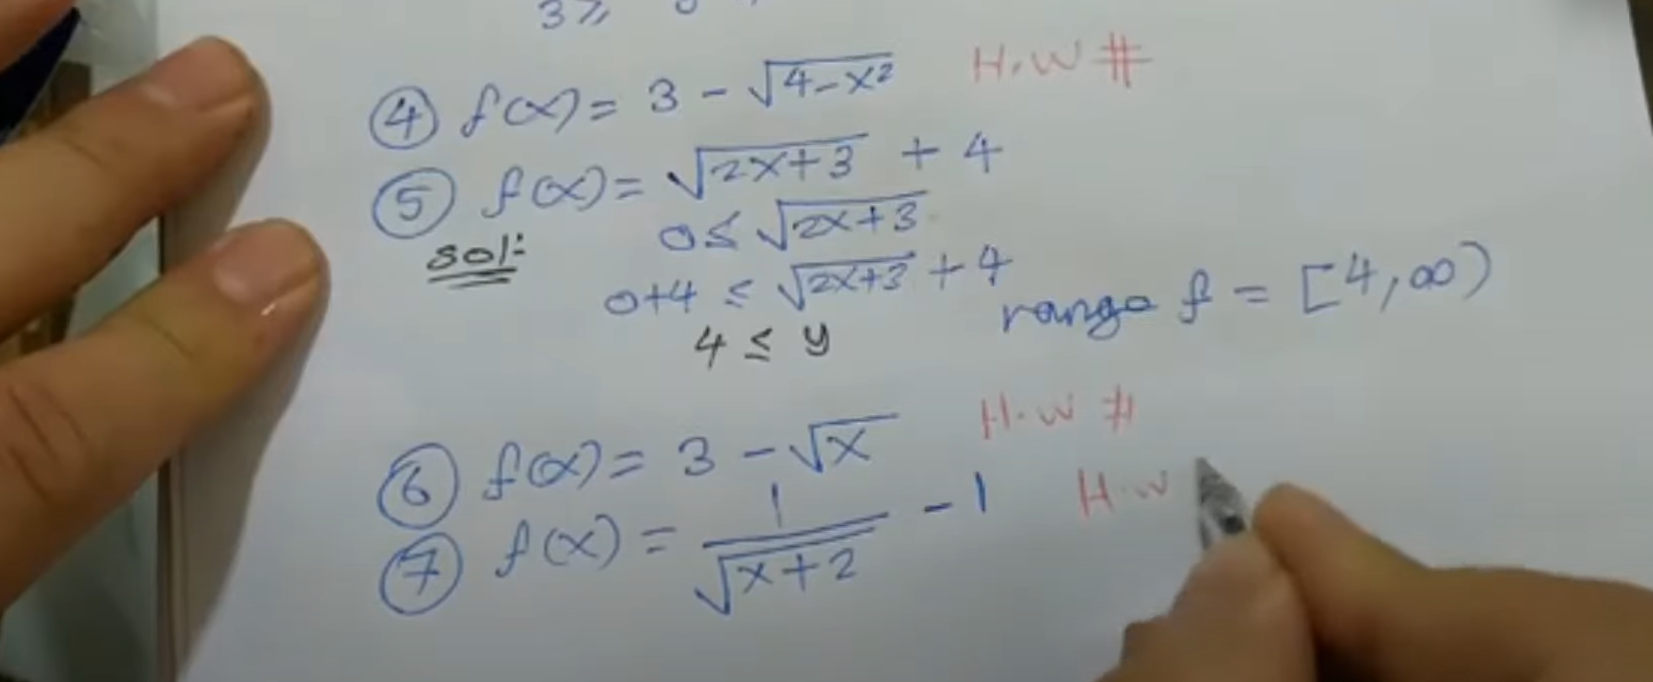 3≥
④ f(x) = 3 - √(4-x²) H.W #
⑤ f(x) = √(2x+3) + 4
sol:
0 ≤ √(2x+3)
0+4 ≤ √(2x+3) + 4
4 ≤ y range f = [4, ∞)
⑥ f(x) = 3 - √x H.W #
⑦ f(x) = 1/√(x+2) - 1 H.W